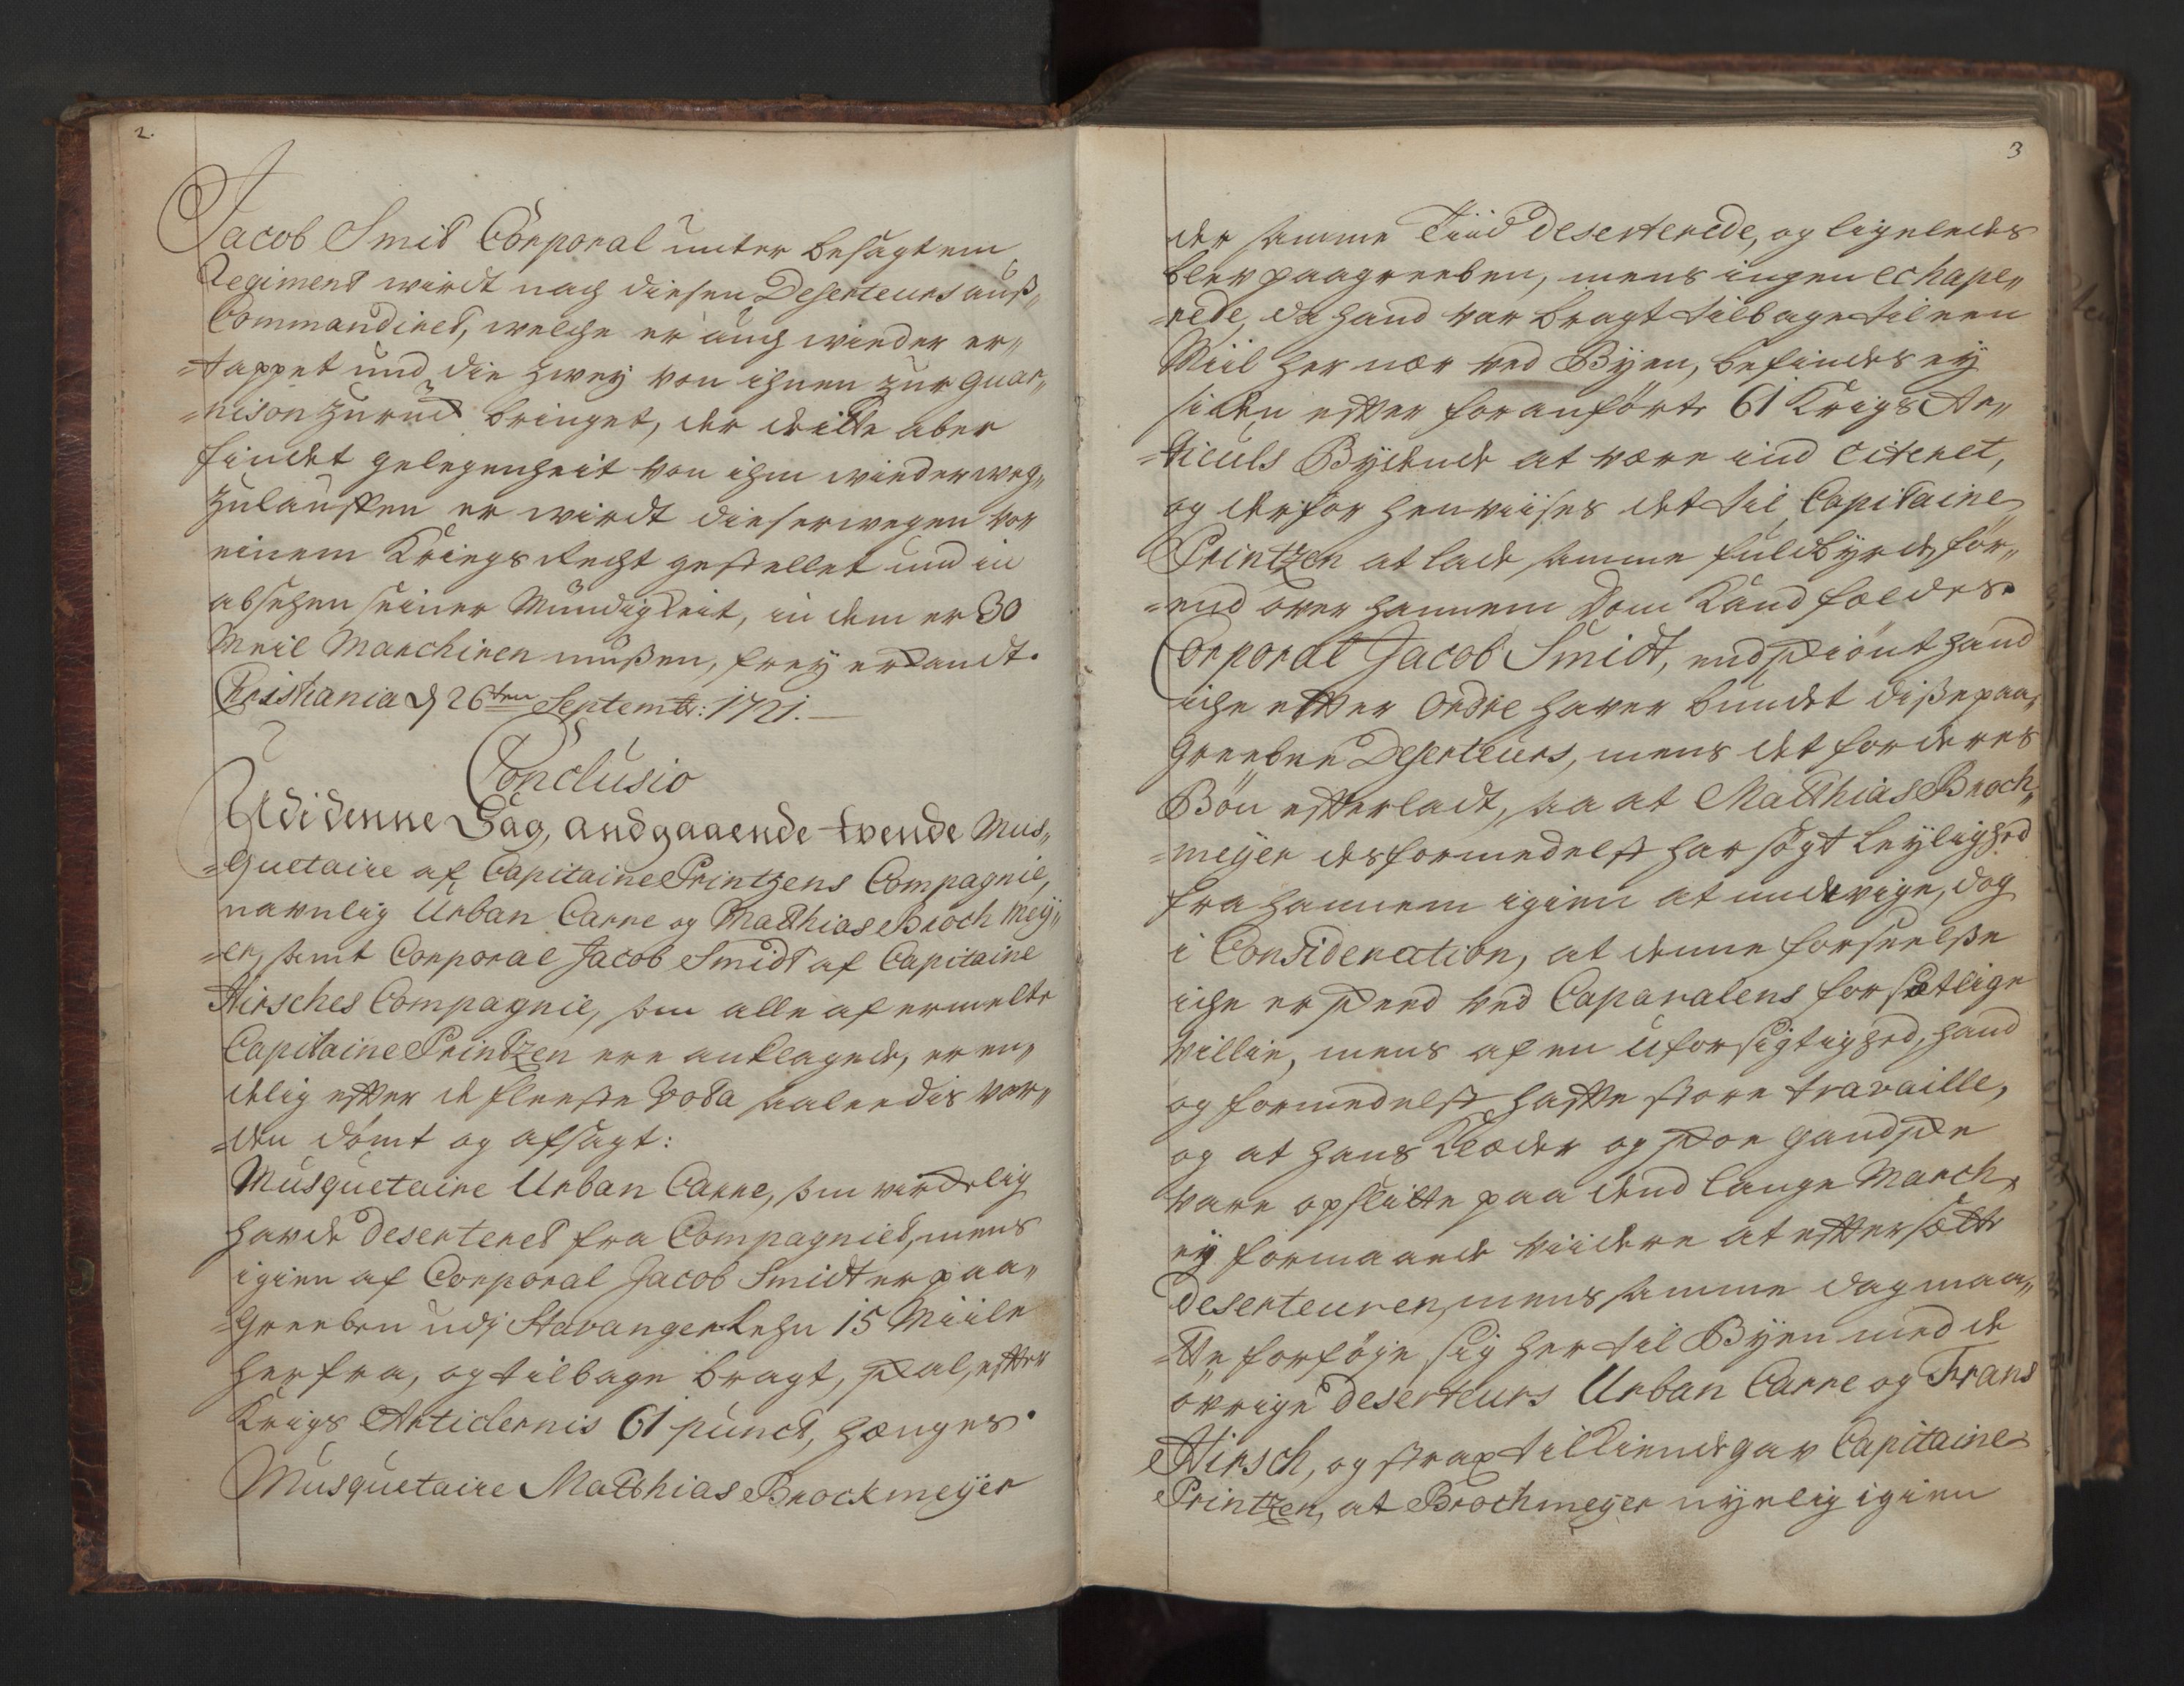 2.
Jacob Smid Corporal unter besagtem
Regiment wirdt nach diesen Deserteurs auß„
Commandiret, welche er auch wieder er„
=tappet und die zwey von ihnen zur guar„
=nison zurück bringet, der dritte aber
findet gelegenheit von ihm wieder weg„
zulauffen er wirdt dieserwegen vor
einem Kriegs Recht gestellet und in
absehen seiner Mündigkeit, in dem er 30
Meil Marchiren müßen, frey erkandt.
Christiania d 26ten Septembr: 1721.
Conclusio
Udi denne Sag, andgaaende tvende Mus„
=quetaire af Capitaine Printzens Compagnie,
navnlig Urban Carre og Matthias Broch Meÿ„
=er, samt Corporal Jacob Smidt af Capitaine
Hirsches Compagnie, som alle af ermelte
Capitaine Printzen ere anklagede, er en„
delig efter de fleeste Vota saaleedis vor„
=den dömt og afsagt:
Musquetaire Urban Carre, som virkelig
hafde Deserteret fra Compagniet, mens
igien af Corporal Jacob Smidt er paa„
=greeben udj Stavanger Lehn 15 Miile
herfra, og tilbage bragt, skal, efter
Krigs Articlernis 61 punct, hænges.
Musquetaire Matthias Brockmeÿer
3
der samme Tiid Deserterede, og ligeledes
blev paagreeben, mens ingen echape„
=rede, da hand var bragt tilbage til een
Miil her nær ved Bÿen, befindes eÿ
siden efter foranförte 61 Krigs Ar„
=ticuls Bÿdende at være ind citeret,
og derfor henviises det til Capitaine
Printzen at lade samme fuldbÿrde, för„
=end over hannem Dom Kand fældes.
Corporal Jacob Smidt, endskiönt hand
iche efter Ordre haver bundet diße paa„
greebne Deserteurs, mens det for deres
Bön efterladt, saa at Matthias Broch„
=meÿer desformedelst har sögt Leÿlighed
fra hannem igien at undvige, dog
i Consideration, at denne forseelße
iche er skeed ved Caparalens forsætlige
Villie, mens af en Uforsigtighed, hand
og formedelst hafte store travaille,
og at hans Klæder og skoe gandske
vare opslitte paa dend lange March,
eÿ formaaede viidere at eftersætte
Deserteuren, mens samme dag maa„
=tte forföje sig her til Bÿen med de
övrige Deserteurs Urban Carre og Frans
Hirsch, og strax tilkiende gav Capitaine
Printzen, at Brochmeÿer nÿelig igien